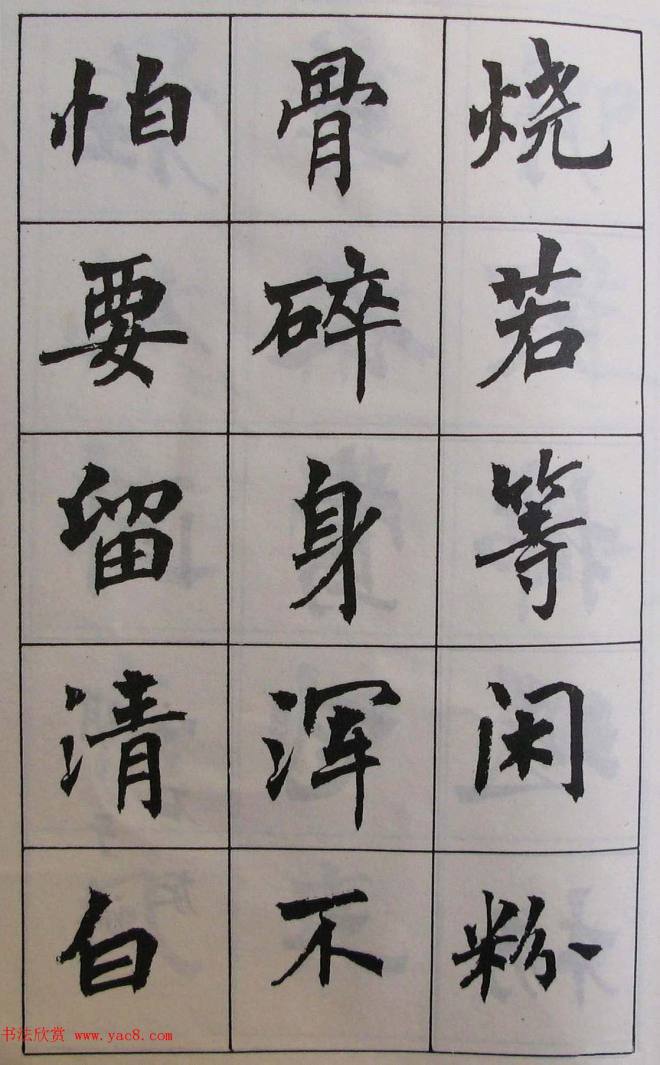 烧若等闲粉
骨碎身浑不
怕要留清白
书法欣赏 www.yac8.com